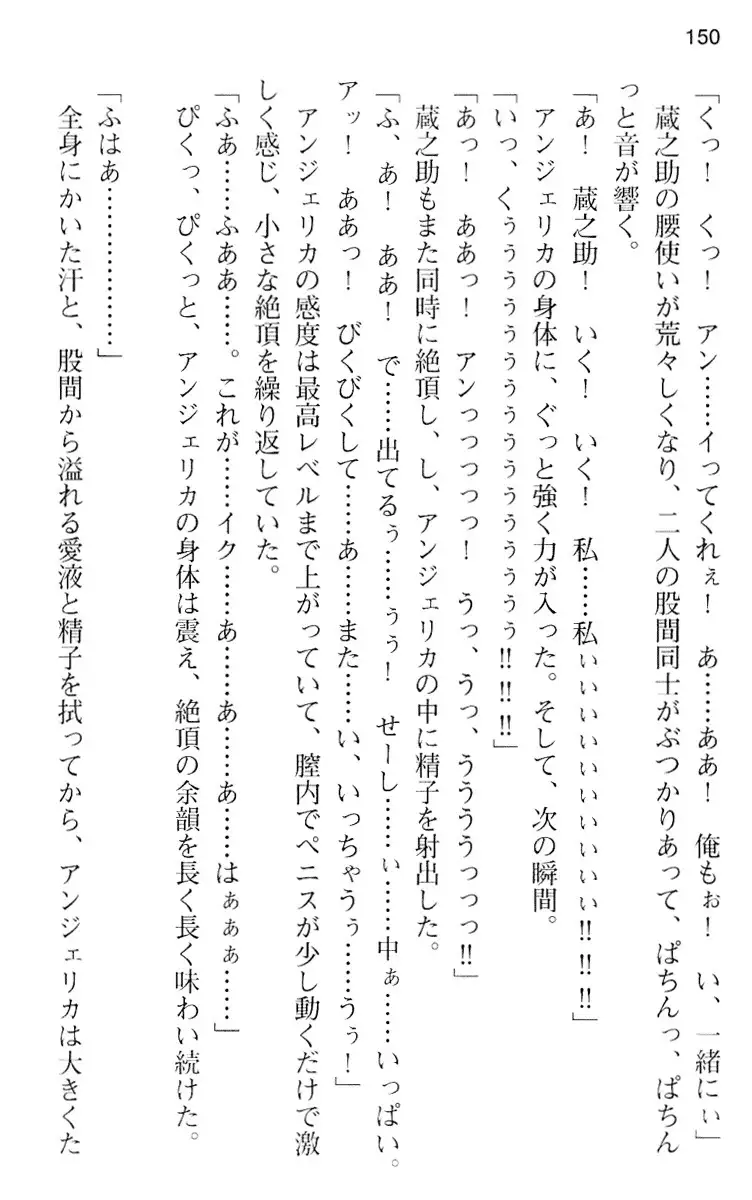 150
「くっ！　くっ！　アン……イってくれぇ！　あ……ああ！　俺もぉ！　い、一緒にぃ」
　蔵之助の腰使いが荒々しくなり、二人の股間同士がぶつかりあって、ぱちんっ、ぱちん
っと音が響く。
「あ！　蔵之助！　いく！　いく！　私……私ぃぃいいいいいいいいぃぃ‼‼‼」
　アンジェリカの身体に、ぐっと強く力が入った。そして、次の瞬間。
「いっ、くぅぅぅぅぅぅぅぅぅぅぅぅぅぅぅ‼‼‼」
「あっ！　ああっ！　アンっっっっっ！　うっ、うっ、ううううっっっ‼」
　蔵之助もまた同時に絶頂し、し、アンジェリカの中に精子を射出した。
「ふ、あ！　ああ！　で……出てるぅ……ぅぅ！　せーし……ぃ……中ぁ……いっぱい。
アッ！　ああっ！　びくびくして……あ……また……い、いっちゃうぅ……うぅ！」
　アンジェリカの感度は最高レベルまで上がっていて、膣内でペニスが少し動くだけで激
しく感じ、小さな絶頂を繰り返していた。
「ふあ……ふああ……。これが……イク……あ……あ……あ……はぁぁぁ……」
　ぴくっ、ぴくっと、アンジェリカの身体は震え、絶頂の余韻を長く長く味わい続けた。
「ふはぁ………………」
　全身にかいた汗と、股間から溢れる愛液と精子を拭ってから、アンジェリカは大きくた